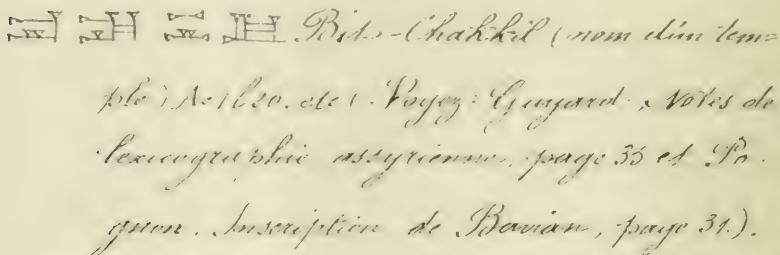 Bit-Chakhil (nom d'un tem=
ple) etc. (Voyez: Guyard, Notes de
lexicographie assyrienne, page 35 et Po-
gnon. Inscription de Bavian, page 31.).